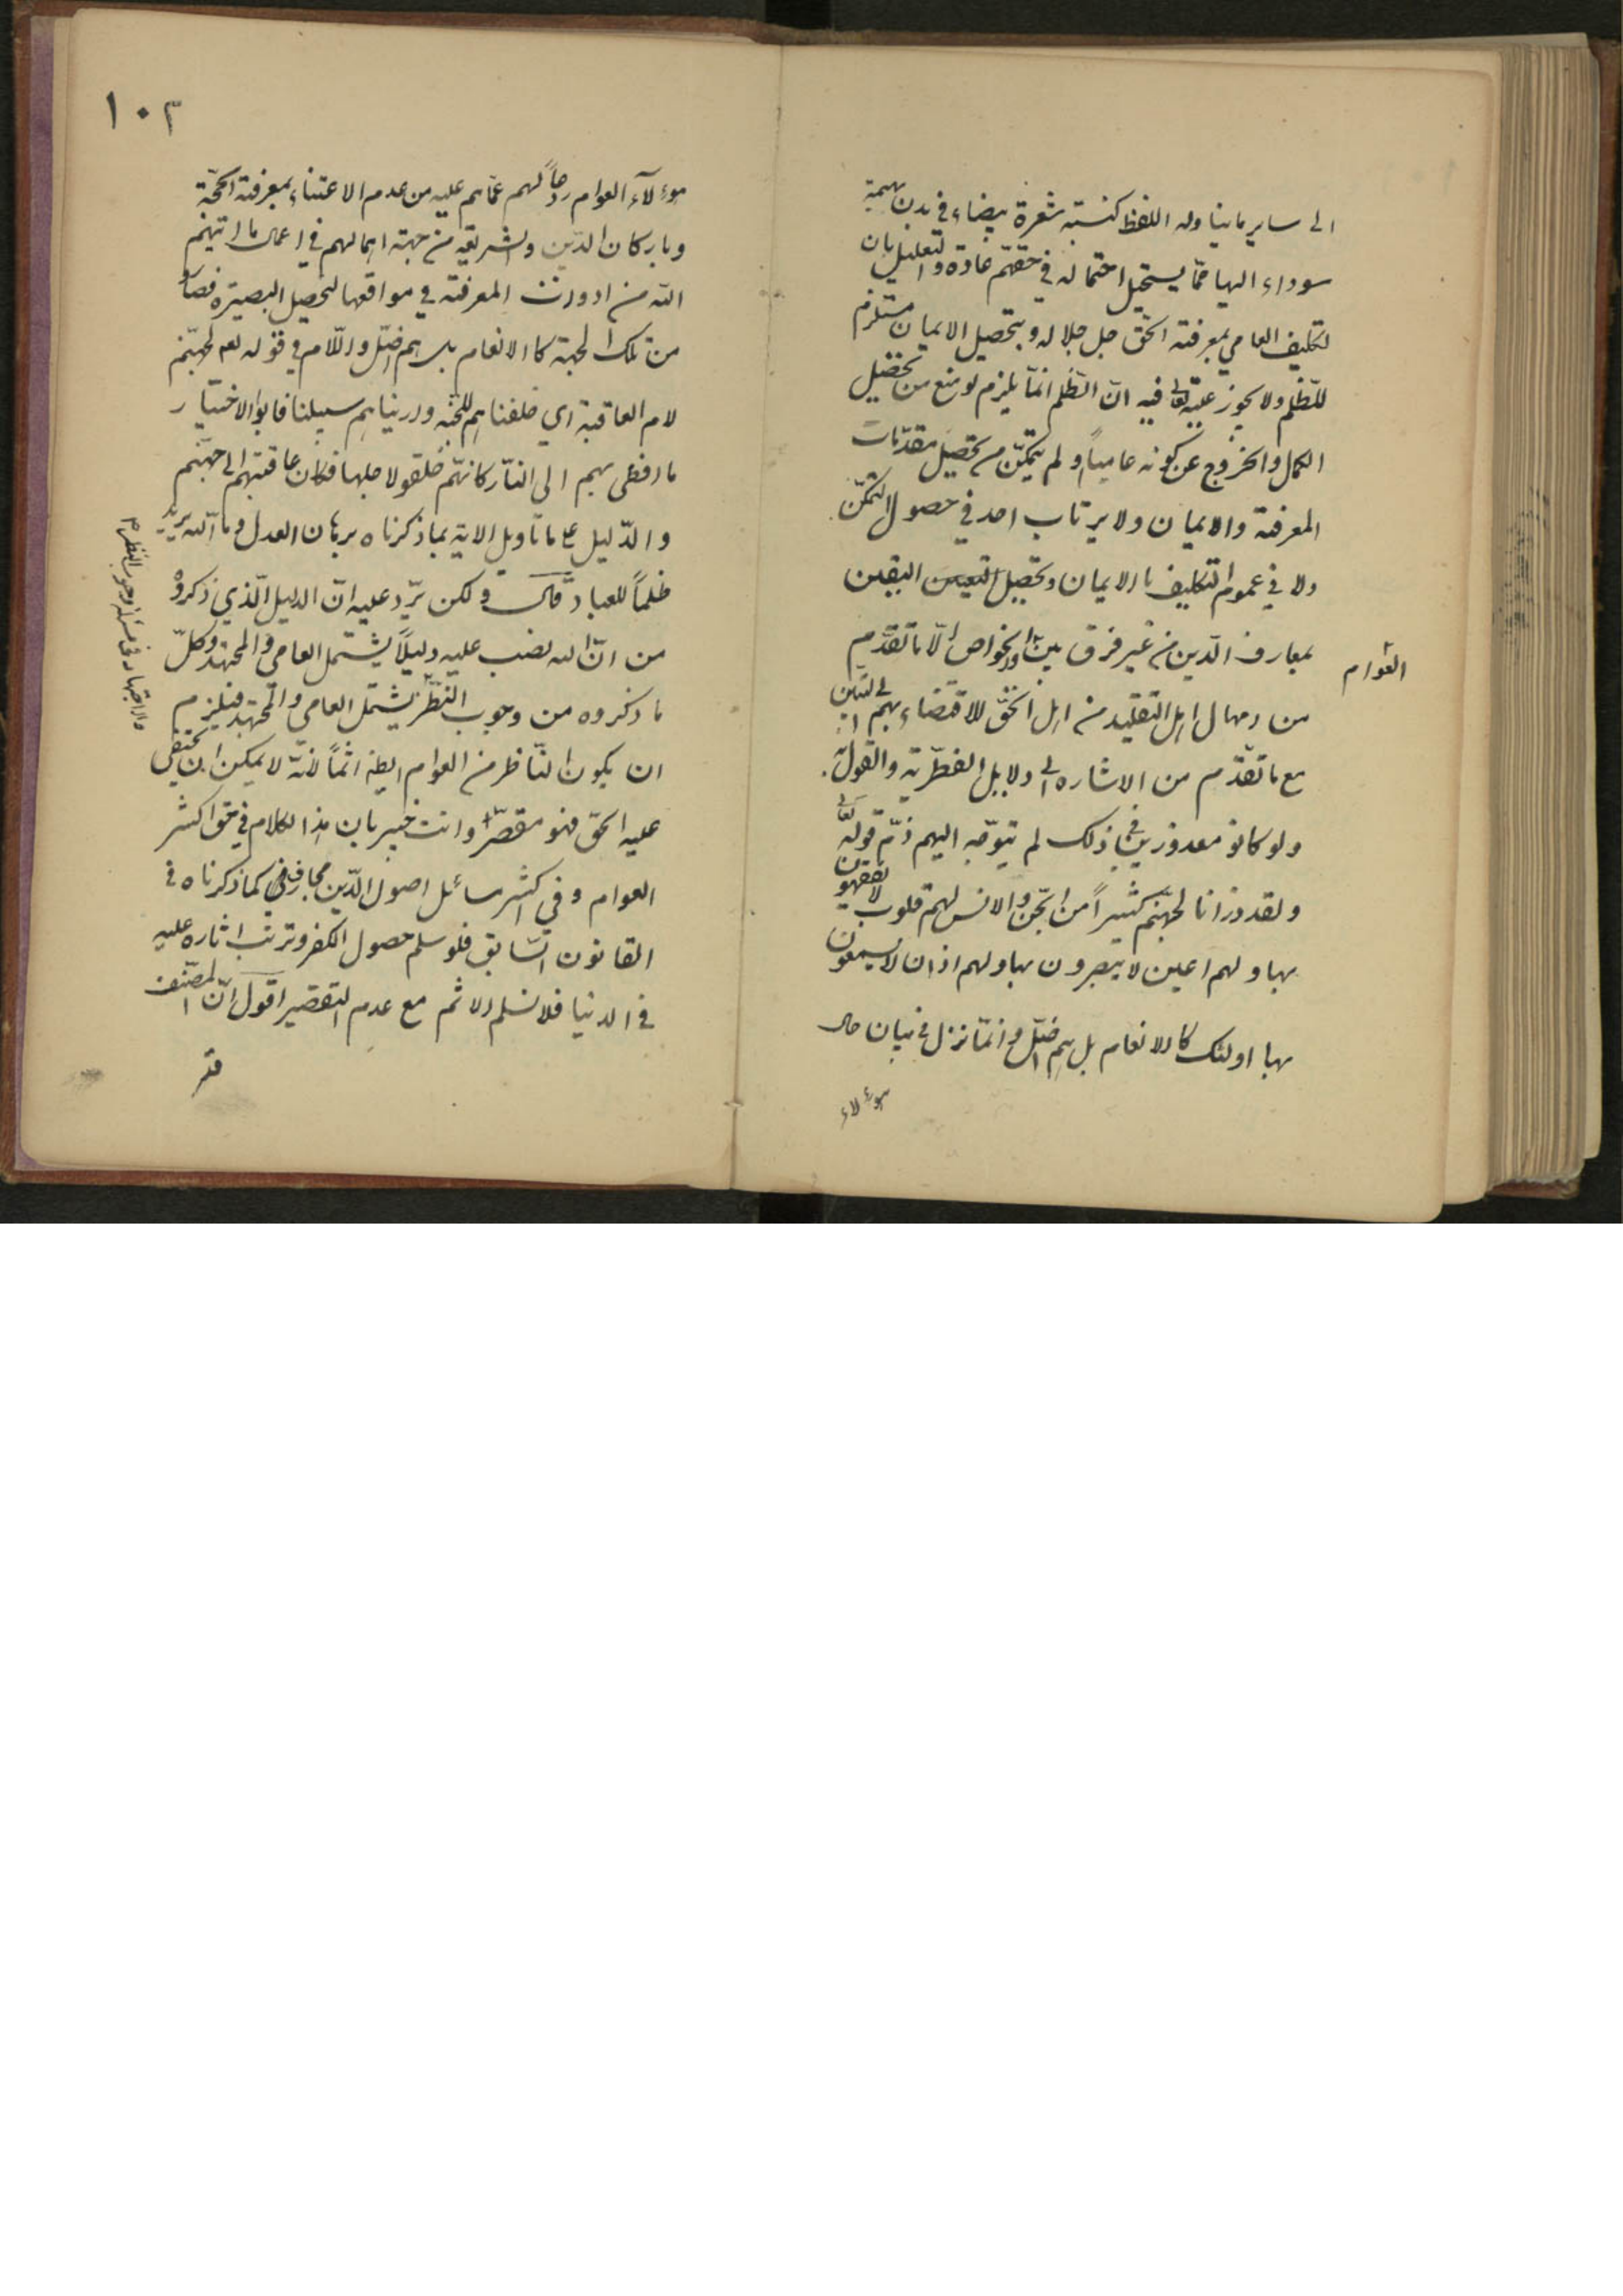 الى ساير ما يناوله اللفظ كنسبة شعرة بيضاء في بدن بهيمة
سوداء اليها ممّا يستحيل احتماله في حقّهم عادة والتعليل بان
تكليف العامي بمعرفة الحقّ جل جلاله وبتحصيل الايمان مستلزم
للظّلم ولا يجوز عليه تعالى فيه انّ الظّلم انّما يلزم لو منع من تحصيل
الكمال والخروج عن كونه عامياً ولم يتمكّن من تحصيل مقدّمات
المعرفة والايمان ولا يرتاب احد في حصول التمكّن
ولا في عموم التكليف بالايمان وتحصيل اليقين
بمعارف الدّين من غير فرق بين والخواص الّا ما تقدّم
العوام
من اهل التقليد من اهل الحقّ للاقتضاء بهم
مع ما تقدّم من الاشاره الى دلايل الفطريّة والقول
ولو كانو معذورين في ذلك لم يتوجّه اليهم ذمّ قوله تعالى
ولقد ذرانا لجهنّم كثيراً من الجنّ والانس لهم قلوب لا يفقهون
بها ولهم اعين لا يبصرون بها ولهم اذان لا يسمعون
بها اولئك كالانعام بل هم اضلّ وانّما نزل في بيان حال
هؤلاء
١٠٣
هؤلآء العوام ردعاً لهم عمّا هم عليه من عدم الاعتناء بمعرفة الحجّة
وباركان الدّين والشريعة من جهة اهمالهم في اعمال ما اتيهم
الله من ادوات المعرفة في مواقعها لتحصيل البصيرة فصاروا
من تلك الجهة كالانعام بل هم اضلّ واللّام في قوله تعم لجهنّم
لام العاقبة اي خلقناهم للجنّة واريناهم سبيلنا فابوا الاختيار
ما افضى بهم الى النّار كانّهم خلقو لاجلها فكان عاقبتهم الى جهنّم
والدّليل على تاويل الاية بما ذكرناه برهان العدل وما الله يريد
ظلماً للعباد قال ولكن يرد عليه انّ الدليل الّذي ذكروه
من انّ الله نصب عليه دليلاً يشتمل العامي والمجتهد وكلّ
ما ذكروه من وجوب النّظر يشتمل العامي والمجتهد فيلزم
ان يكون النّاظر من العوام ايضا اثماً لانّه لا يمكن ان يختفي
عليه الحقّ فهو مقصّر وانت خبير بان هذا الكلام في حق اكثر
العوام وفي اكثر مسائل اصول الدّين مجازفة كما ذكرناه في
القانون السّابق فلو سلم حصول الكفر وترتب اثاره عليه
في الدنيا فلا نسلم الاثم مع عدم التقصير اقول انّ المصنّف